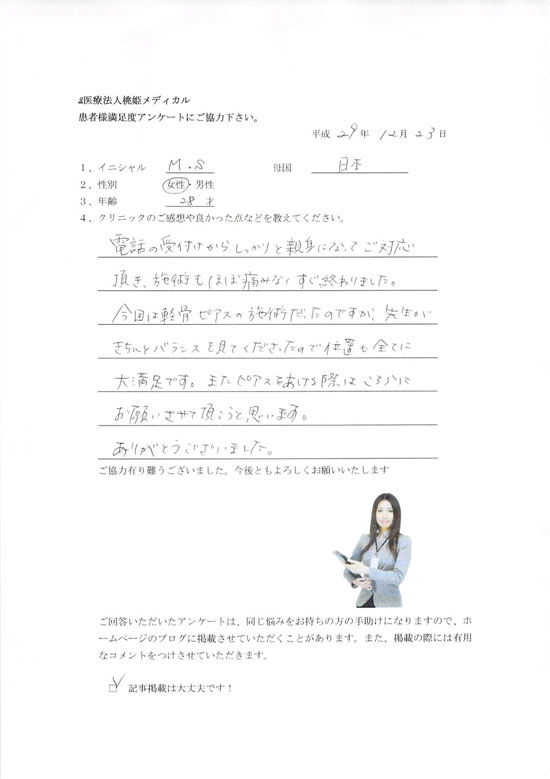 医療法人桃姫メディカル
患者様満足度アンケートにご協力下さい。
平成 29 年 12 月 23 日
1、イニシャル M.S 母国 日本
2、性別 女性・男性
3、年齢 28 才
4、クリニックのご感想や良かった点などを教えてください。
電話の受付けからしっかりと親身になってご対応
頂き、施術もほぼ痛みなくすぐ終わりました。
今回は軽骨ピアスの施術だったのですが、先生が
きちんとバランスを見てくださったので位置も全てに
大満足です。またピアスをあける際はこちらに
お願いさせて頂こうと思います。
ありがとうございました。
ご協力有り難うございました。今後ともよろしくお願いいたします
ご回答いただいたアンケートは、同じ悩みをお持ちの方の手助けになりますので、ホ
ームページのブログに掲載させていただくことがあります。また、掲載の際には有用
なコメントをつけさせていただきます。
記事掲載は大丈夫です！